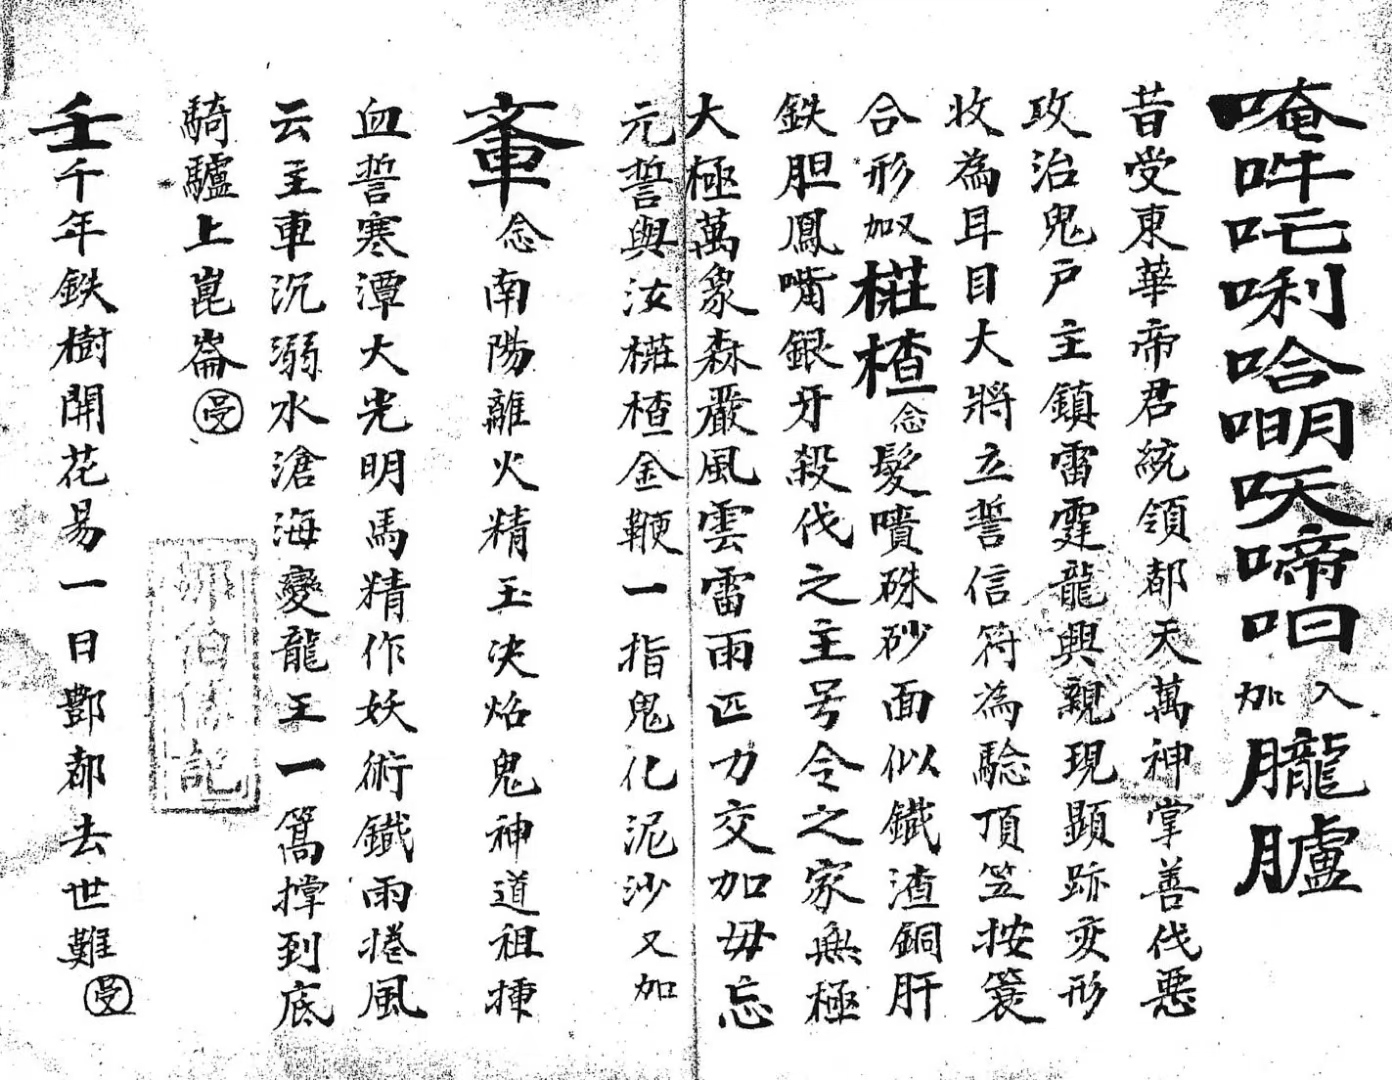 唵吽吒唎哈𠵼㕭啼呬入加朧臚
昔受東華帝君統領都天萬神掌善伐惡
攻治鬼户主鎮雷霆龍興親現顕跡変形
收為耳目大將立誓信符為驗頂笠按簑
合形加㕛𣚎楂念髮噴硃砂面似鐵渣銅肝
鉄胆鳳嘴銀牙殺伐之主号令之家無極
大極萬象森嚴風雲雷雨匹力交加毋忘
元誓與汝𣚎楂金鞭一指鬼化泥沙又加
念南陽離火精玉決焰鬼神道祖揀
血誓寒潭大光明馬精作妖術鐵雨捲風
云主車沉溺水滄海變龍王一篙撑到底
騎驢上崑崙
壬千年鉄樹開花易一日酆都去世難
記